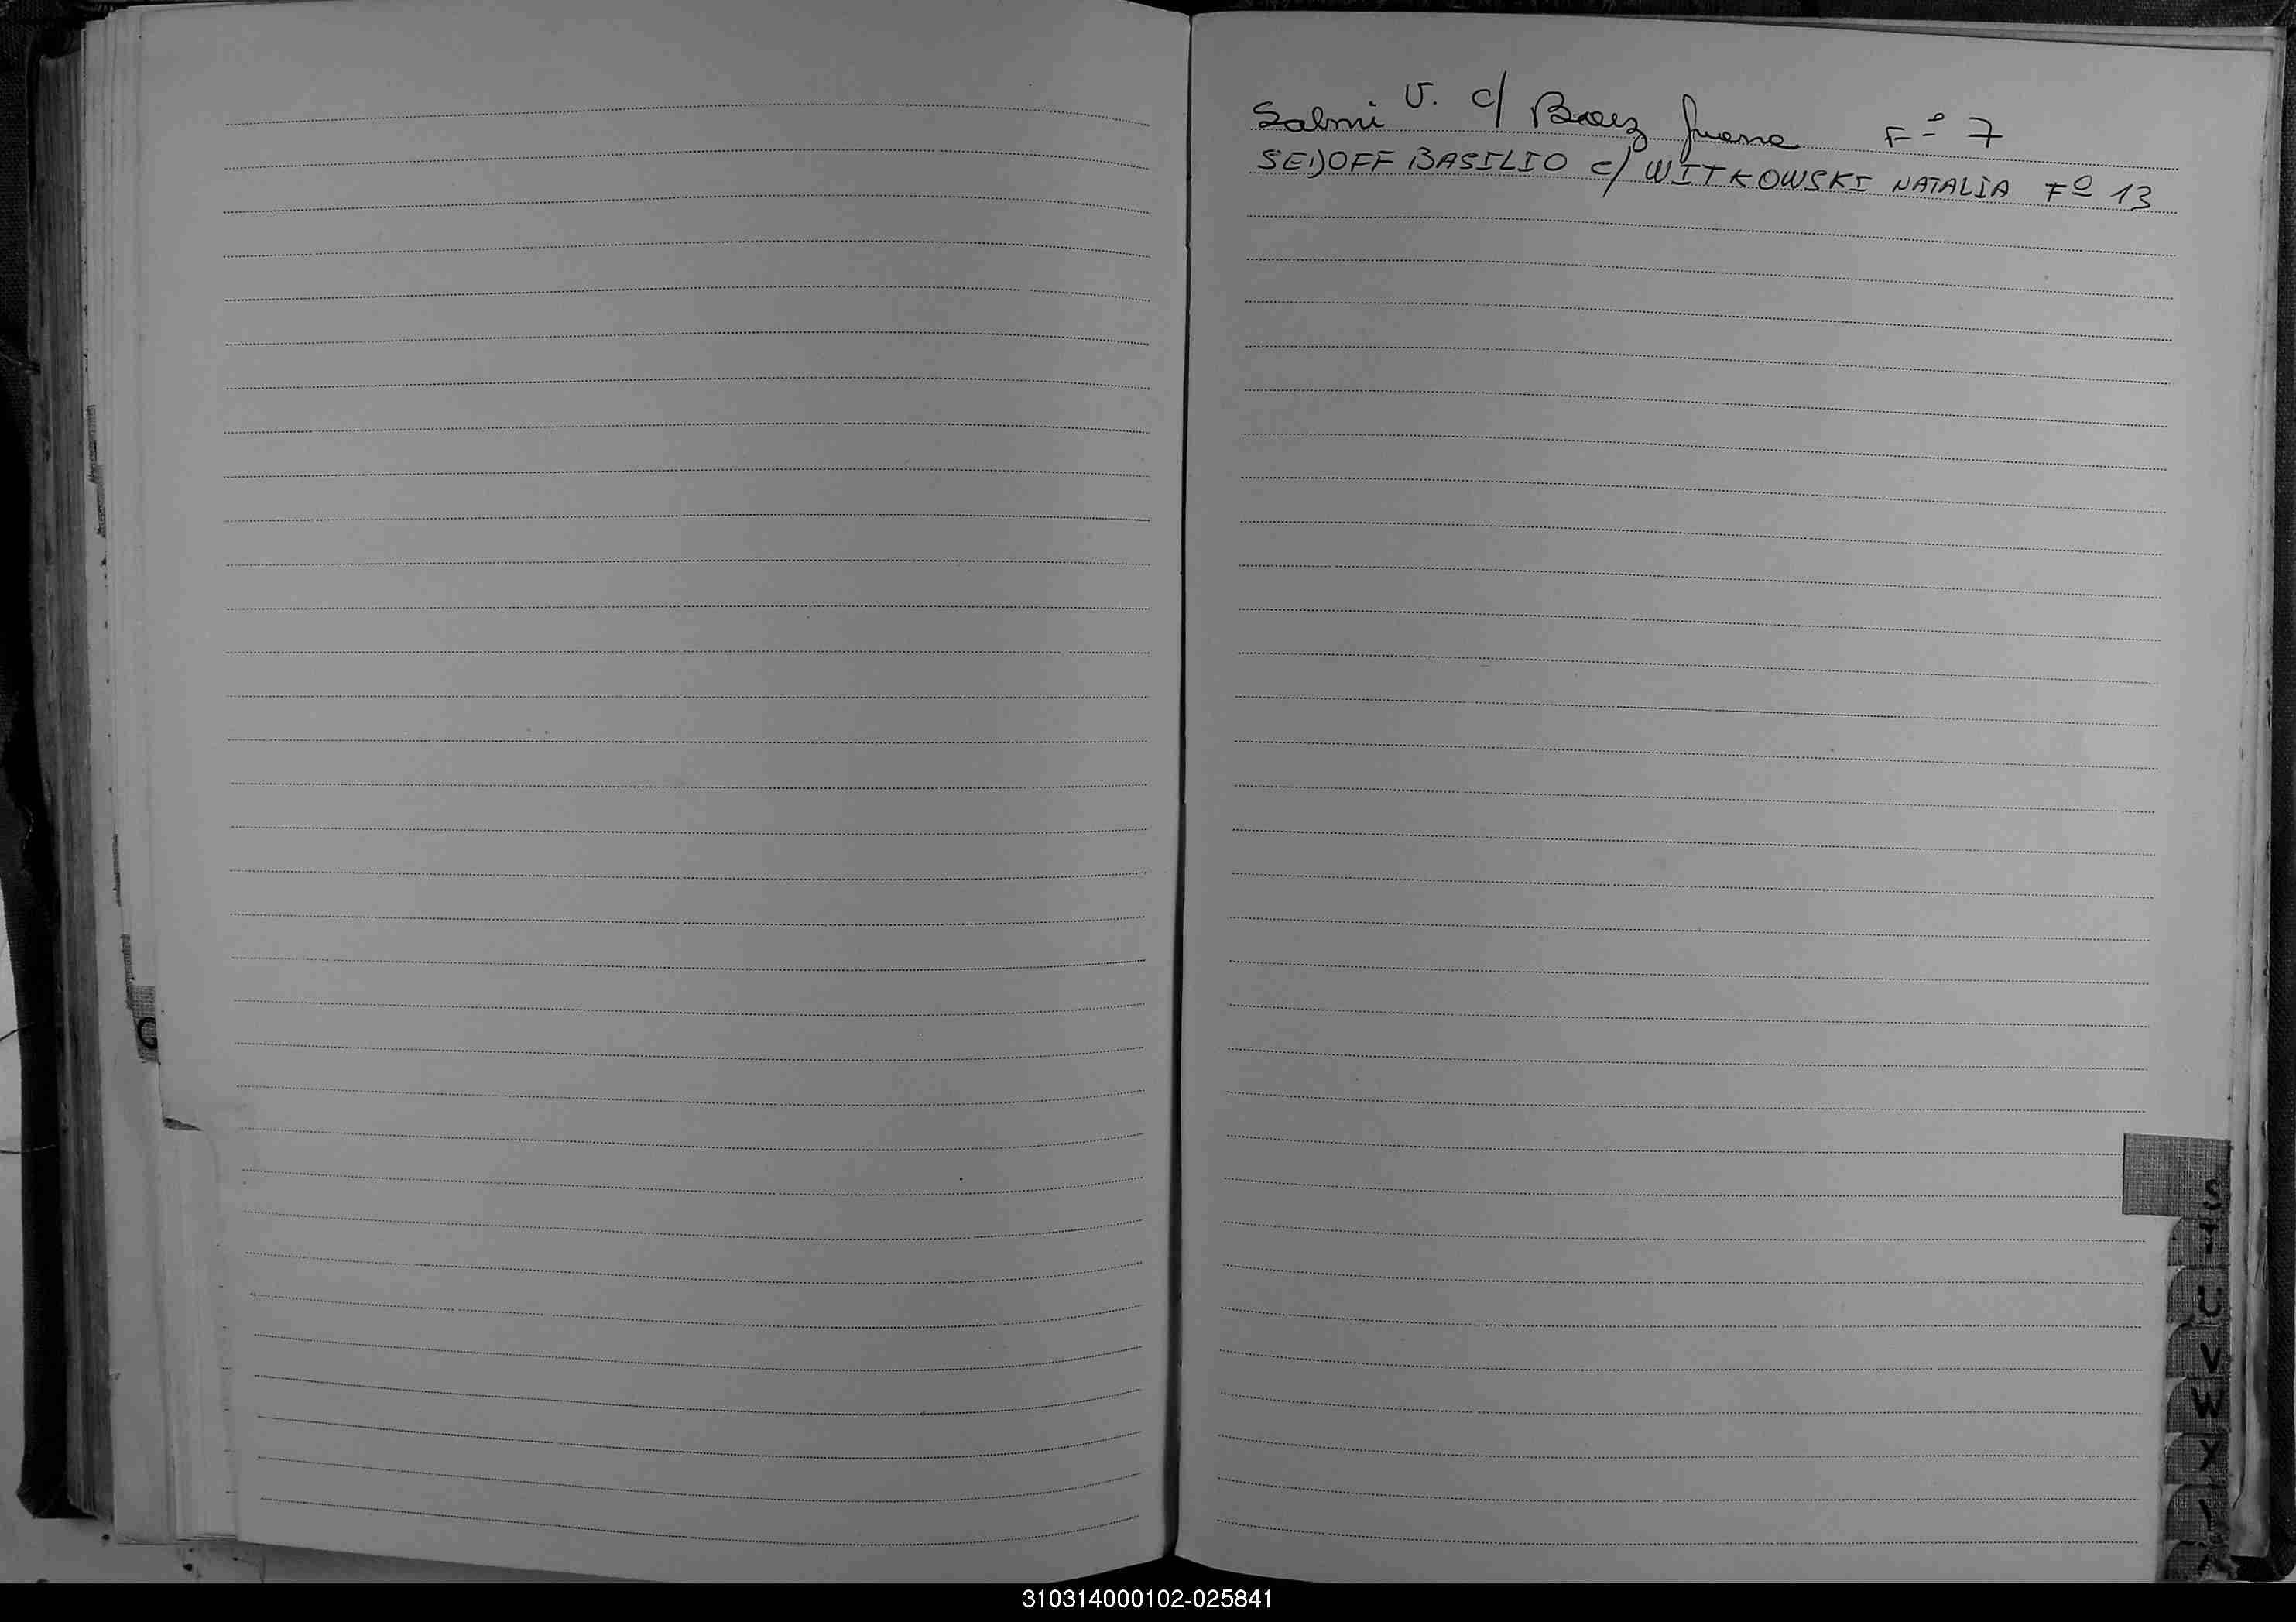 Salmi V. c/ Baez Juana Fº 7
SEDOFF BASILIO c/ WITKOWSKI NATALIA Fº 13
C
S
T
U
V
W
X
Y
310314000102-025841